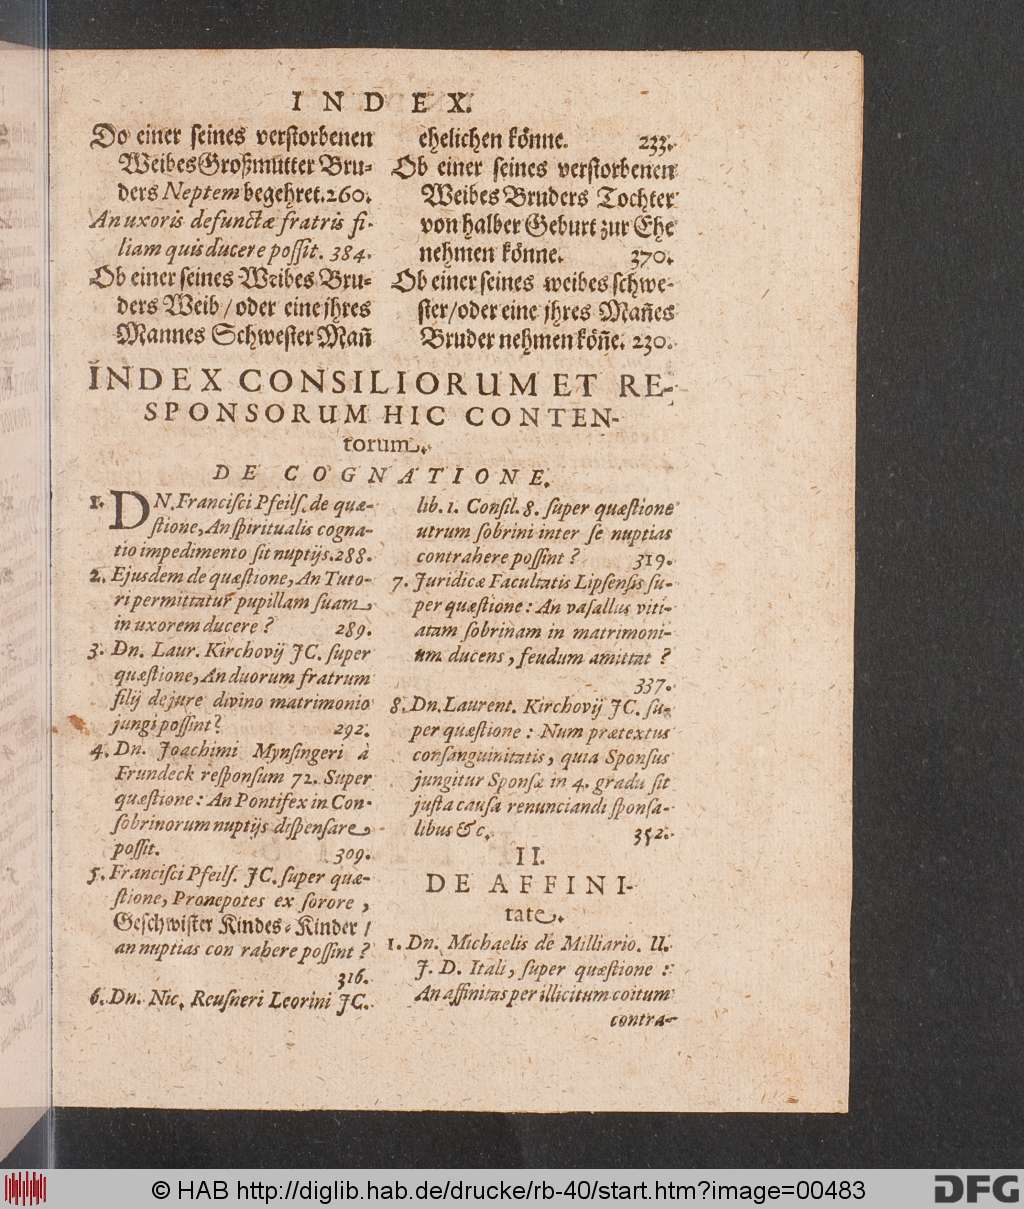 INDEX.
Do einer seines verstorbenen
Weibes Großmutter Bru-
ders Neptem begehret. 260.
An uxoris defunctæ fratris fi-
liam quis ducere possit. 384.
Ob einer seines Weibes Bru-
ders Weib / oder eine jhres
Mannes Schwester Mañ
ehelichen könne. 233.
Ob einer seines verstorbenen
Weibes Bruders Tochter
von halber Geburt zur Ehe
nehmen könne. 370.
Ob einer seines weibes schwe-
ster / oder eine jhres Mañes
Bruder nehmen köñe. 230.
INDEX CONSILIORUM ET RE-
SPONSORUM HIC CONTEN-
torum.
DE COGNATIONE.
1. DN. Francisci Pfeils. de quæ-
stione, An spiritualis cogna-
tio impedimento sit nuptijs. 288.
2. Ejusdem de quæstione, An Tuto-
ri permittatur pupillam suam
in uxorem ducere? 289.
3. Dn. Laur. Kirchovij JC. super
quæstione, An duorum fratrum
filij de jure divino matrimonio
jungi possint? 292.
4. Dn. Joachimi Mynsingeri à
Frundeck responsum 72. Super
quæstione: An Pontifex in Con-
sobrinorum nuptijs dispensare
possit. 309.
5. Francisci Pfeils. JC. super quæ-
stione, Pronepotes ex sorore,
Geschwister Kindes-Kinder /
an nuptias con rahere possint?
316.
6. Dn. Nic. Reusneri Leorini JC.
lib. 1. Consil. 8. super quæstione
utrum sobrini inter se nuptias
contrahere possint? 319.
7. Juridicæ Facultatis Lipsensis su-
per quæstione: An vasallus viti-
atam sobrinam in matrimoni-
um ducens, feudum amittat?
337.
8. Dn. Laurent. Kirchovij JC. su-
per quæstione: Num prætextus
consanguinitatis, quia Sponsus
jungitur Sponsæ in 4. gradu sit
justa causa renunciandi sponsa-
libus &c. 352.
II.
DE AFFINI-
tate.
1. Dn. Michaelis de Milliario. U.
J. D. Itali, super quæstione:
An affinitas per illicitum coitum
contra-
© HAB http://diglib.hab.de/drucke/rb-40/start.htm?image=00483
DFG